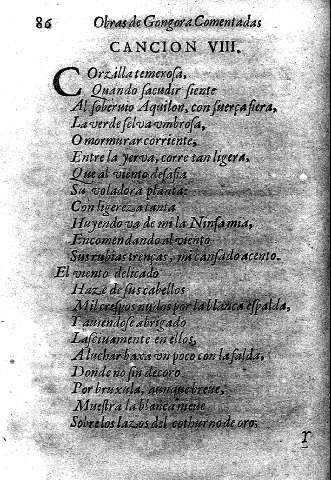 86 Obras de Gongora Comentadas
CANCION VIII.
COrzilla temerosa,
Quando sacudir siente
Al soberuio Aquilon, con fuerça fiera,
La verde selua vmbrosa,
O mormurar corriente,
Entre la yerva, corre tan ligera,
Que al viento desafia
Su voladora planta:
Con ligereza tanta
Huyendo va de mi la Ninfa mia,
Encomendando al viento
Sus rubias trenças, mi cansado acento.
El viento delicado
Haze de sus cabellos
Mil crespos nudos por la blanca espalda,
I auiendose abrigado
Lasciuamente en ellos,
A luchar baxa vn poco con la falda,
Donde no sin decoro
Por bruxula, aunque breue,
Muestra la blanca nieue
Sobre los lazos del cothurno de oro:
Y